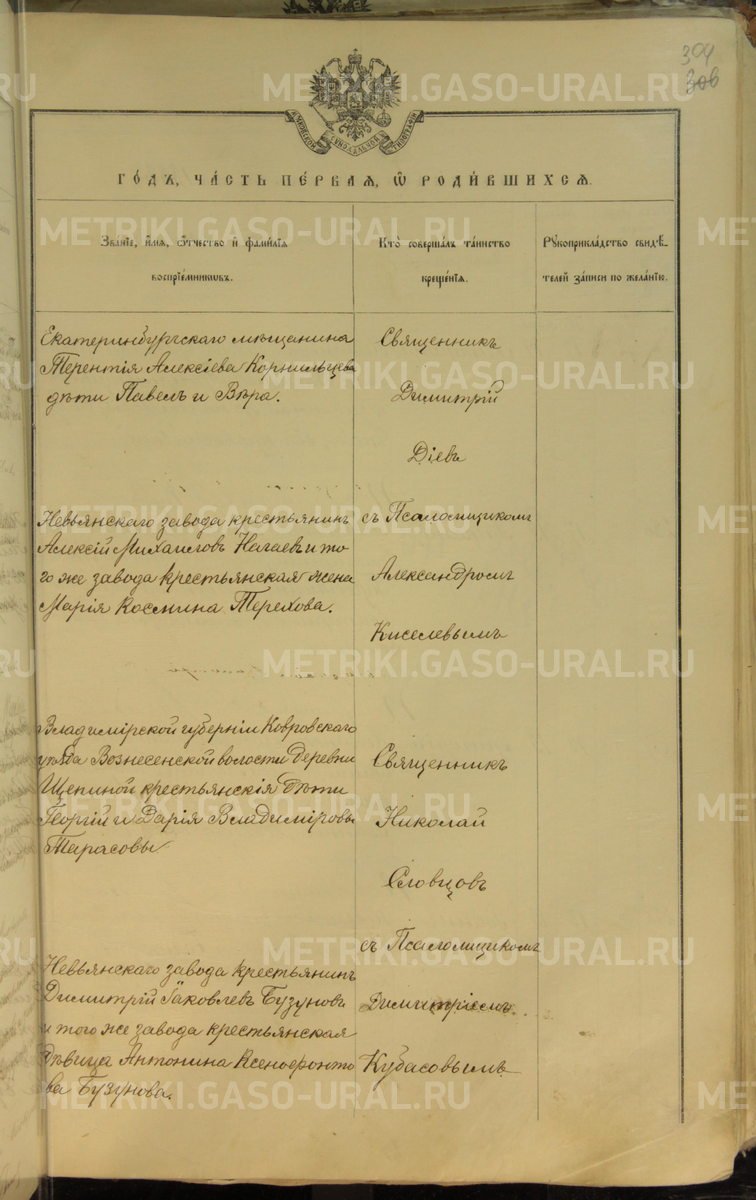 304
306
МОСКОВСКОЙ СѴНОДАЛЬНОЙ ТИПОГРАФІИ
ГО́ДЪ, ЧА́СТЬ ПЕ́РВАЯ, Ѡ҆ РОДИ́ВШИХСЯ.
Зва́нїе, и҆́мя, ѻ҆́тчество и҆ фами́лїя
воспрїе́мникѡвъ.
Кто̀ соверша́лъ та́инство
креще́нїя.
Рꙋкоприкла́дство свидѣ́-
телей за́писи по жела́нїю.
Екатеринбургскаго мѣщанина
Терентія Алексіева Корнильцева
дѣти Павелъ и Вѣра.
Священникъ
Димитрій
Діевъ
Невьянскаго завода крестьянинъ
Алексій Михаиловъ Нагаевъ и то-
го же завода крестьянская жена
Марія Космина Терехова.
съ Псаломщикомъ
Александромъ
Киселевымъ
Владимірской губерніи Ковровскаго
уѣзда Вознесенской волости деревни
Щепиной крестьянскія дѣти
Георгій и Дарія Владиміровы
Тарасовы
Священникъ
Николай
Словцовъ
Невьянскаго завода крестьянинъ
Димитрій Іаковлевъ Бузуновъ
и того же завода крестьянская
дѣвица Антонина Ксенофонто
ва Бузунова.
съ Псаломщикомъ
Димитріемъ
Кубасовымъ
METRIKI.GASO-URAL.RU